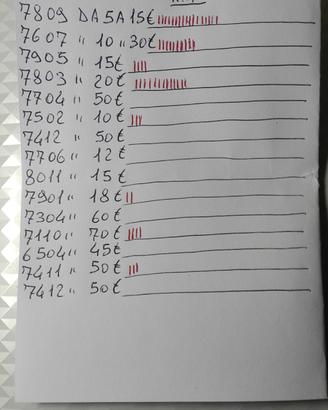 7809 DA 5A 15€
7607 " 10 " 30€
7905 " 15€
7803 " 20€
7704 " 50€
7502 " 10€
7412 " 50€
7706 " 12€
8011 " 15€
7901 " 18€
7304 " 60€
7110 " 70€
6504 " 45€
7411 " 50€
7412 " 50€